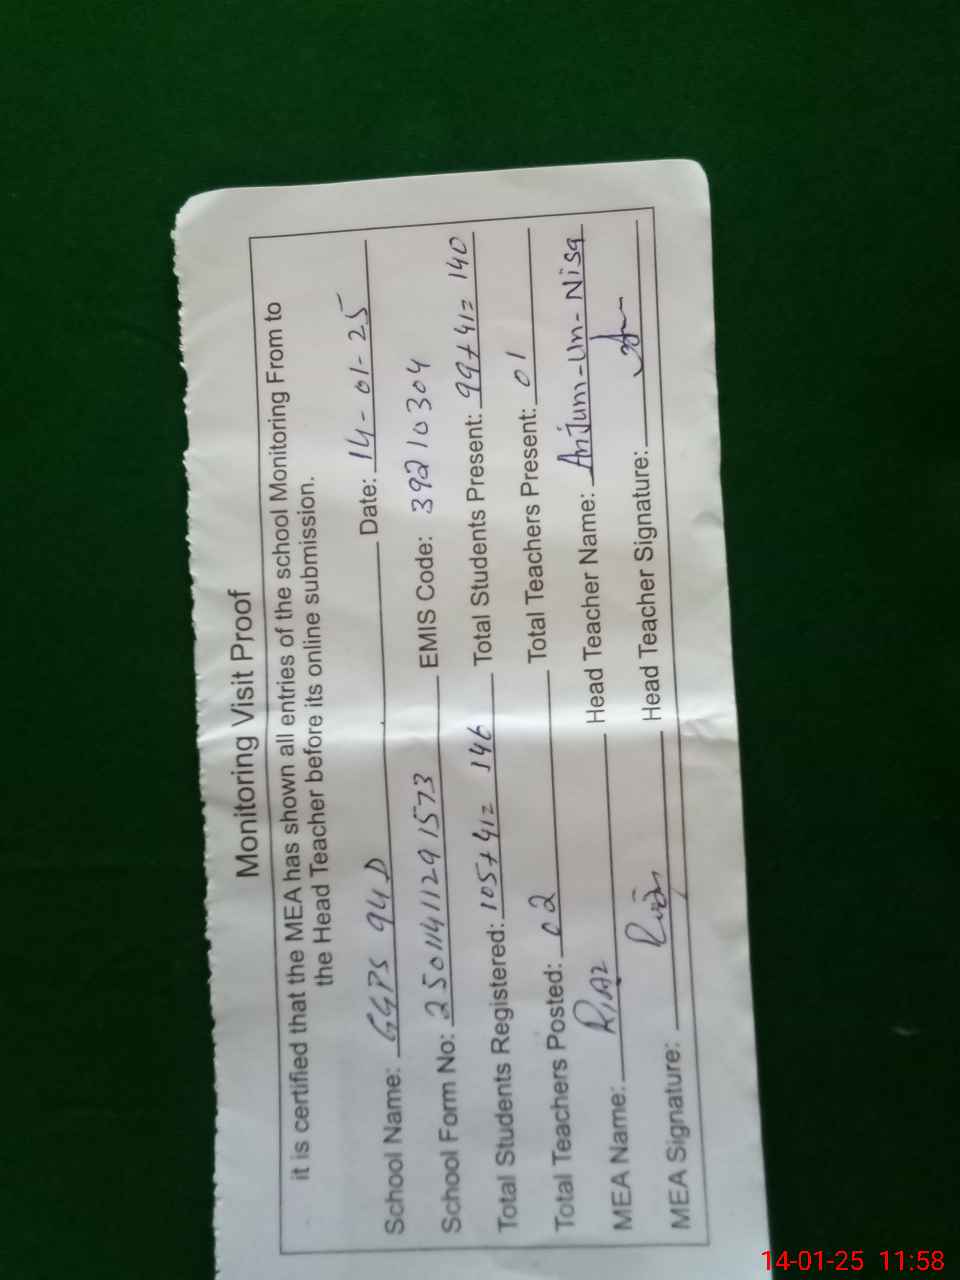 Monitoring Visit Proof
it is certified that the MEA has shown all entries of the school Monitoring From to
the Head Teacher before its online submission.
School Name: GGPS 94 D Date: 14-01-25
School Form No: 25011411291573 EMIS Code: 39210304
Total Students Registered: 105+41= 146 Total Students Present: 99+41= 140
Total Teachers Posted: 02 Total Teachers Present: 01
MEA Name: RIAZ Head Teacher Name: Anjum-Un-Nisa
MEA Signature: Head Teacher Signature:
14-01-25 11:58